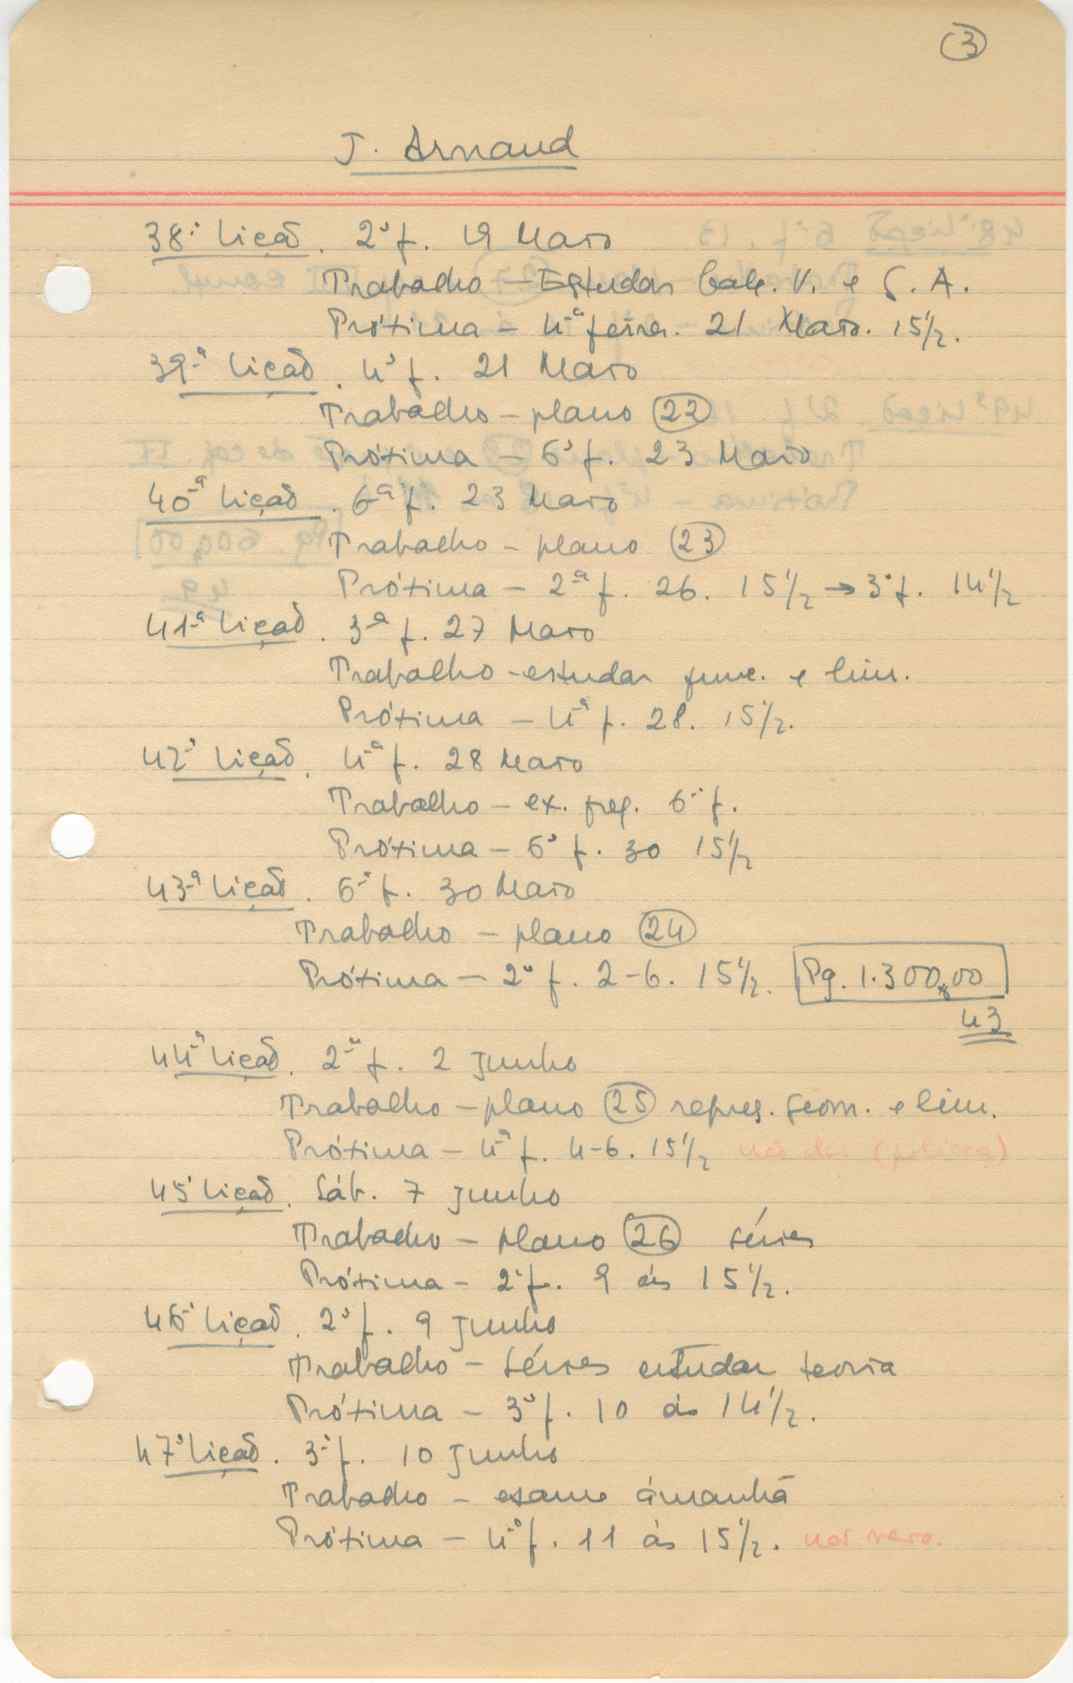 3
J. Arnaud
38ª Lição. 2ª f. 19 Maio
Trabalho - Estudar Calc. V. e G. A.
Próxima - 4ª feira. 21 Maio. 15½.
39ª Lição. 4ª f. 21 Maio
Trabalho - plano 22
Próxima - 6ª f. 23 Maio
40ª Lição. 6ª f. 23 Maio
Trabalho - plano 23
Próxima - 2ª f. 26. 15½ → 3ª f. 14½
41ª Lição. 3ª f. 27 Maio
Trabalho - estudar func. e lim.
Próxima - 4ª f. 28. 15½.
42ª Lição. 4ª f. 28 Maio
Trabalho - ex. freq. 6ª f.
Próxima - 6ª f. 30 15½
43ª Lição. 6ª f. 30 Maio
Trabalho - plano 24
Próxima - 2ª f. 2-6. 15½. Pg. 1.300,00
43
44ª Lição. 2ª f. 2 Junho
Trabalho - plano 25 repres. geom. e lim.
Próxima - 4ª f. 4-6. 15½ não deu
45ª Lição. Sáb. 7 Junho
Trabalho - plano 26 séries
Próxima - 2ª f. 9 ás 15½.
46ª Lição. 2ª f. 9 Junho
Trabalho - séries estudar teoria
Próxima - 3ª f. 10 ás 14½.
47ª Lição. 3ª f. 10 Junho
Trabalho - exame ámanhã
Próxima - 4ª f. 11 ás 15½. não veio.